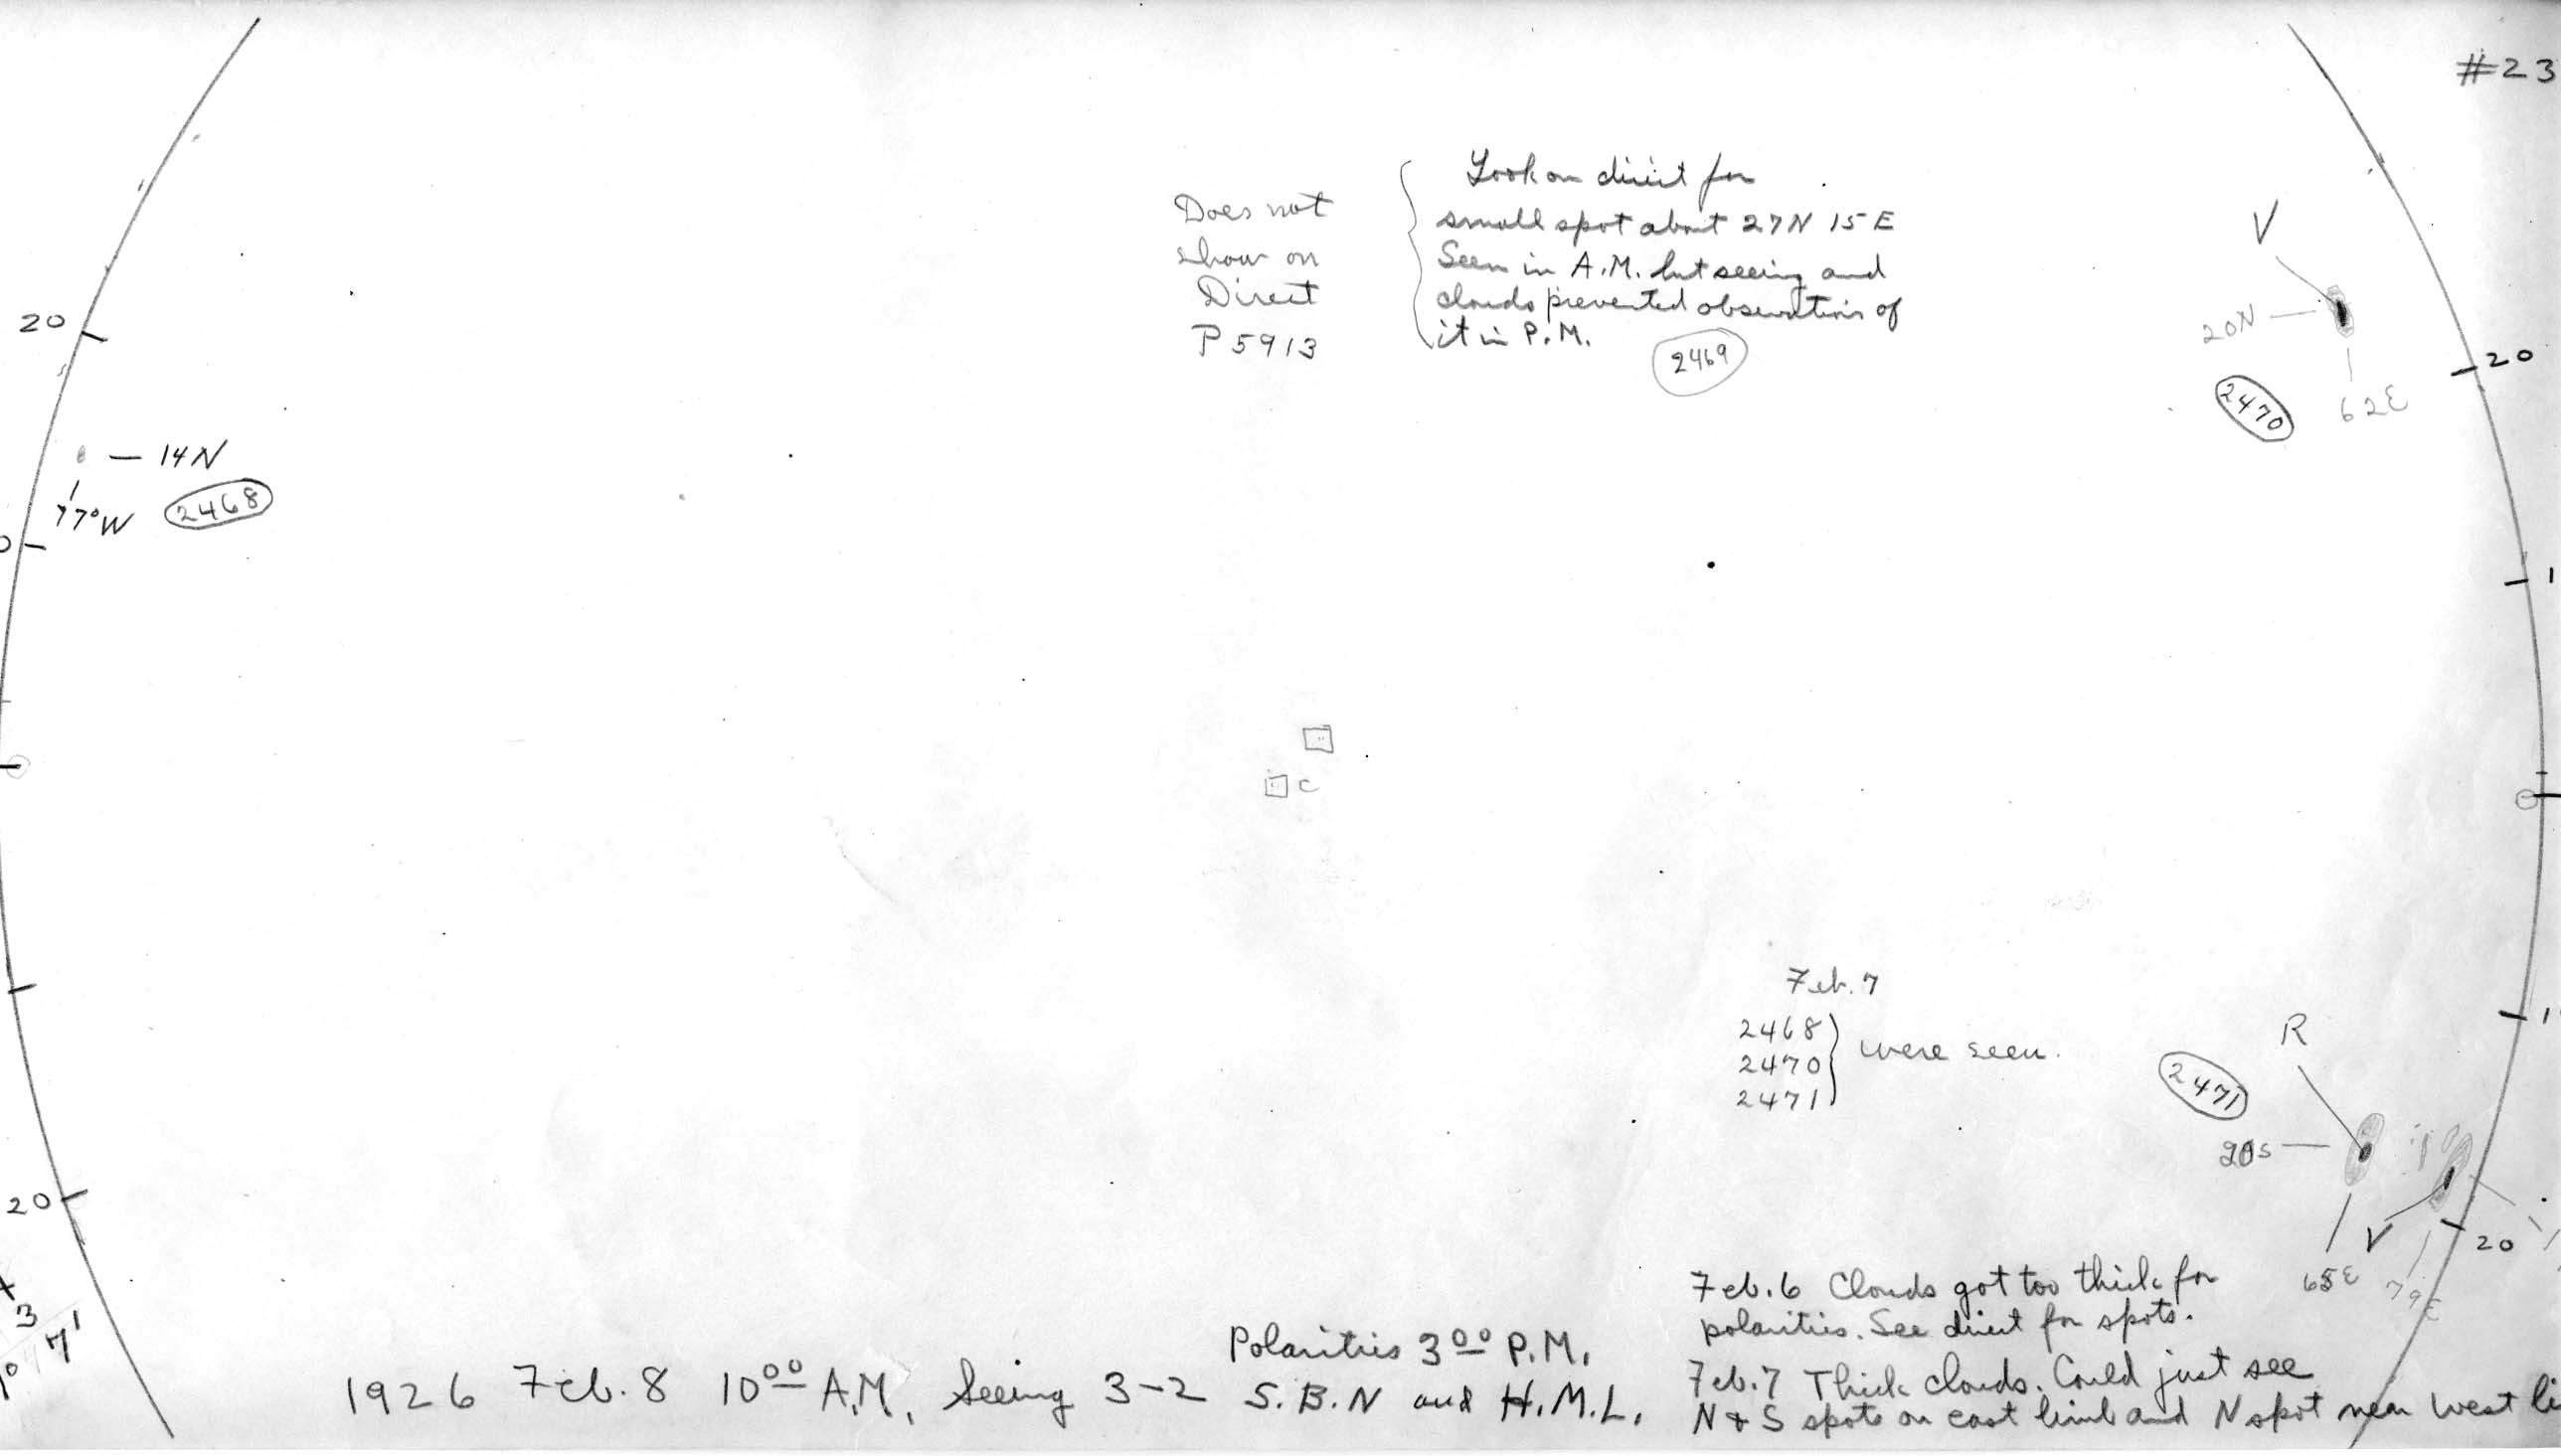 #23
Look on direct for
small spot about 27N 15E
Seen in A.M. but seeing and
clouds prevented observation of
it in P.M.
2469
Does not
show on
Direct
P 5913
V
20N
62E
2470
20
20
14N
77°W
2468
C
Feb. 7
2468
2470
2471
were seen.
R
2471
20S
V
65E
79E
20
20
3
7'
Feb. 6 Clouds got too thick for
polarities. See direct for spots.
Feb. 7 Thick clouds. Could just see
N & S spots on east limb and N spot near West li
Polarities 3 00 P.M.
1926 Feb. 8 10 00 A.M. Seeing 3-2 S.B.N and H.M.L.